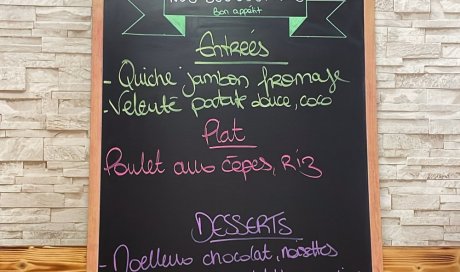 Bon appétit
Entrées
- Quiche jambon fromage
- Velouté patate douce, coco
Plat
Poulet aux cèpes, Riz
DESSERTS
- Moelleux chocolat, noisettes